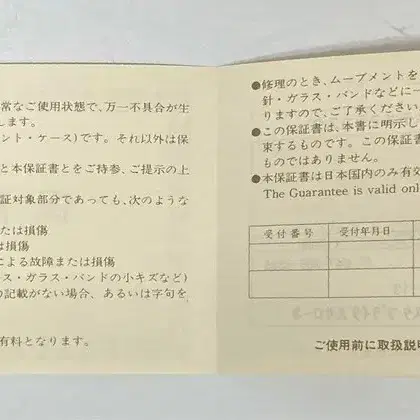 常なご使用状態で、万一不具合が生
します。
ント・ケース)です。それ以外は保
と本保証書とをご持参、ご提示の上
証対象部分であっても、次のような
たは損傷
は損傷
による故障または損傷
ス・ガラス・バンドの小キズなど)
の記載がない場合、あるいは字句を
有料となります。
●修理のとき、ムーブメントを
針・ガラス・バンドなどに一
りますので、ご了承ください
●この保証書は、本書に明示し
束するものです。この保証書
ものではありません。
●本保証書は日本国内のみ有効
The Guarantee is valid onl
受付番号 受付年月日
ご使用前に取扱説明